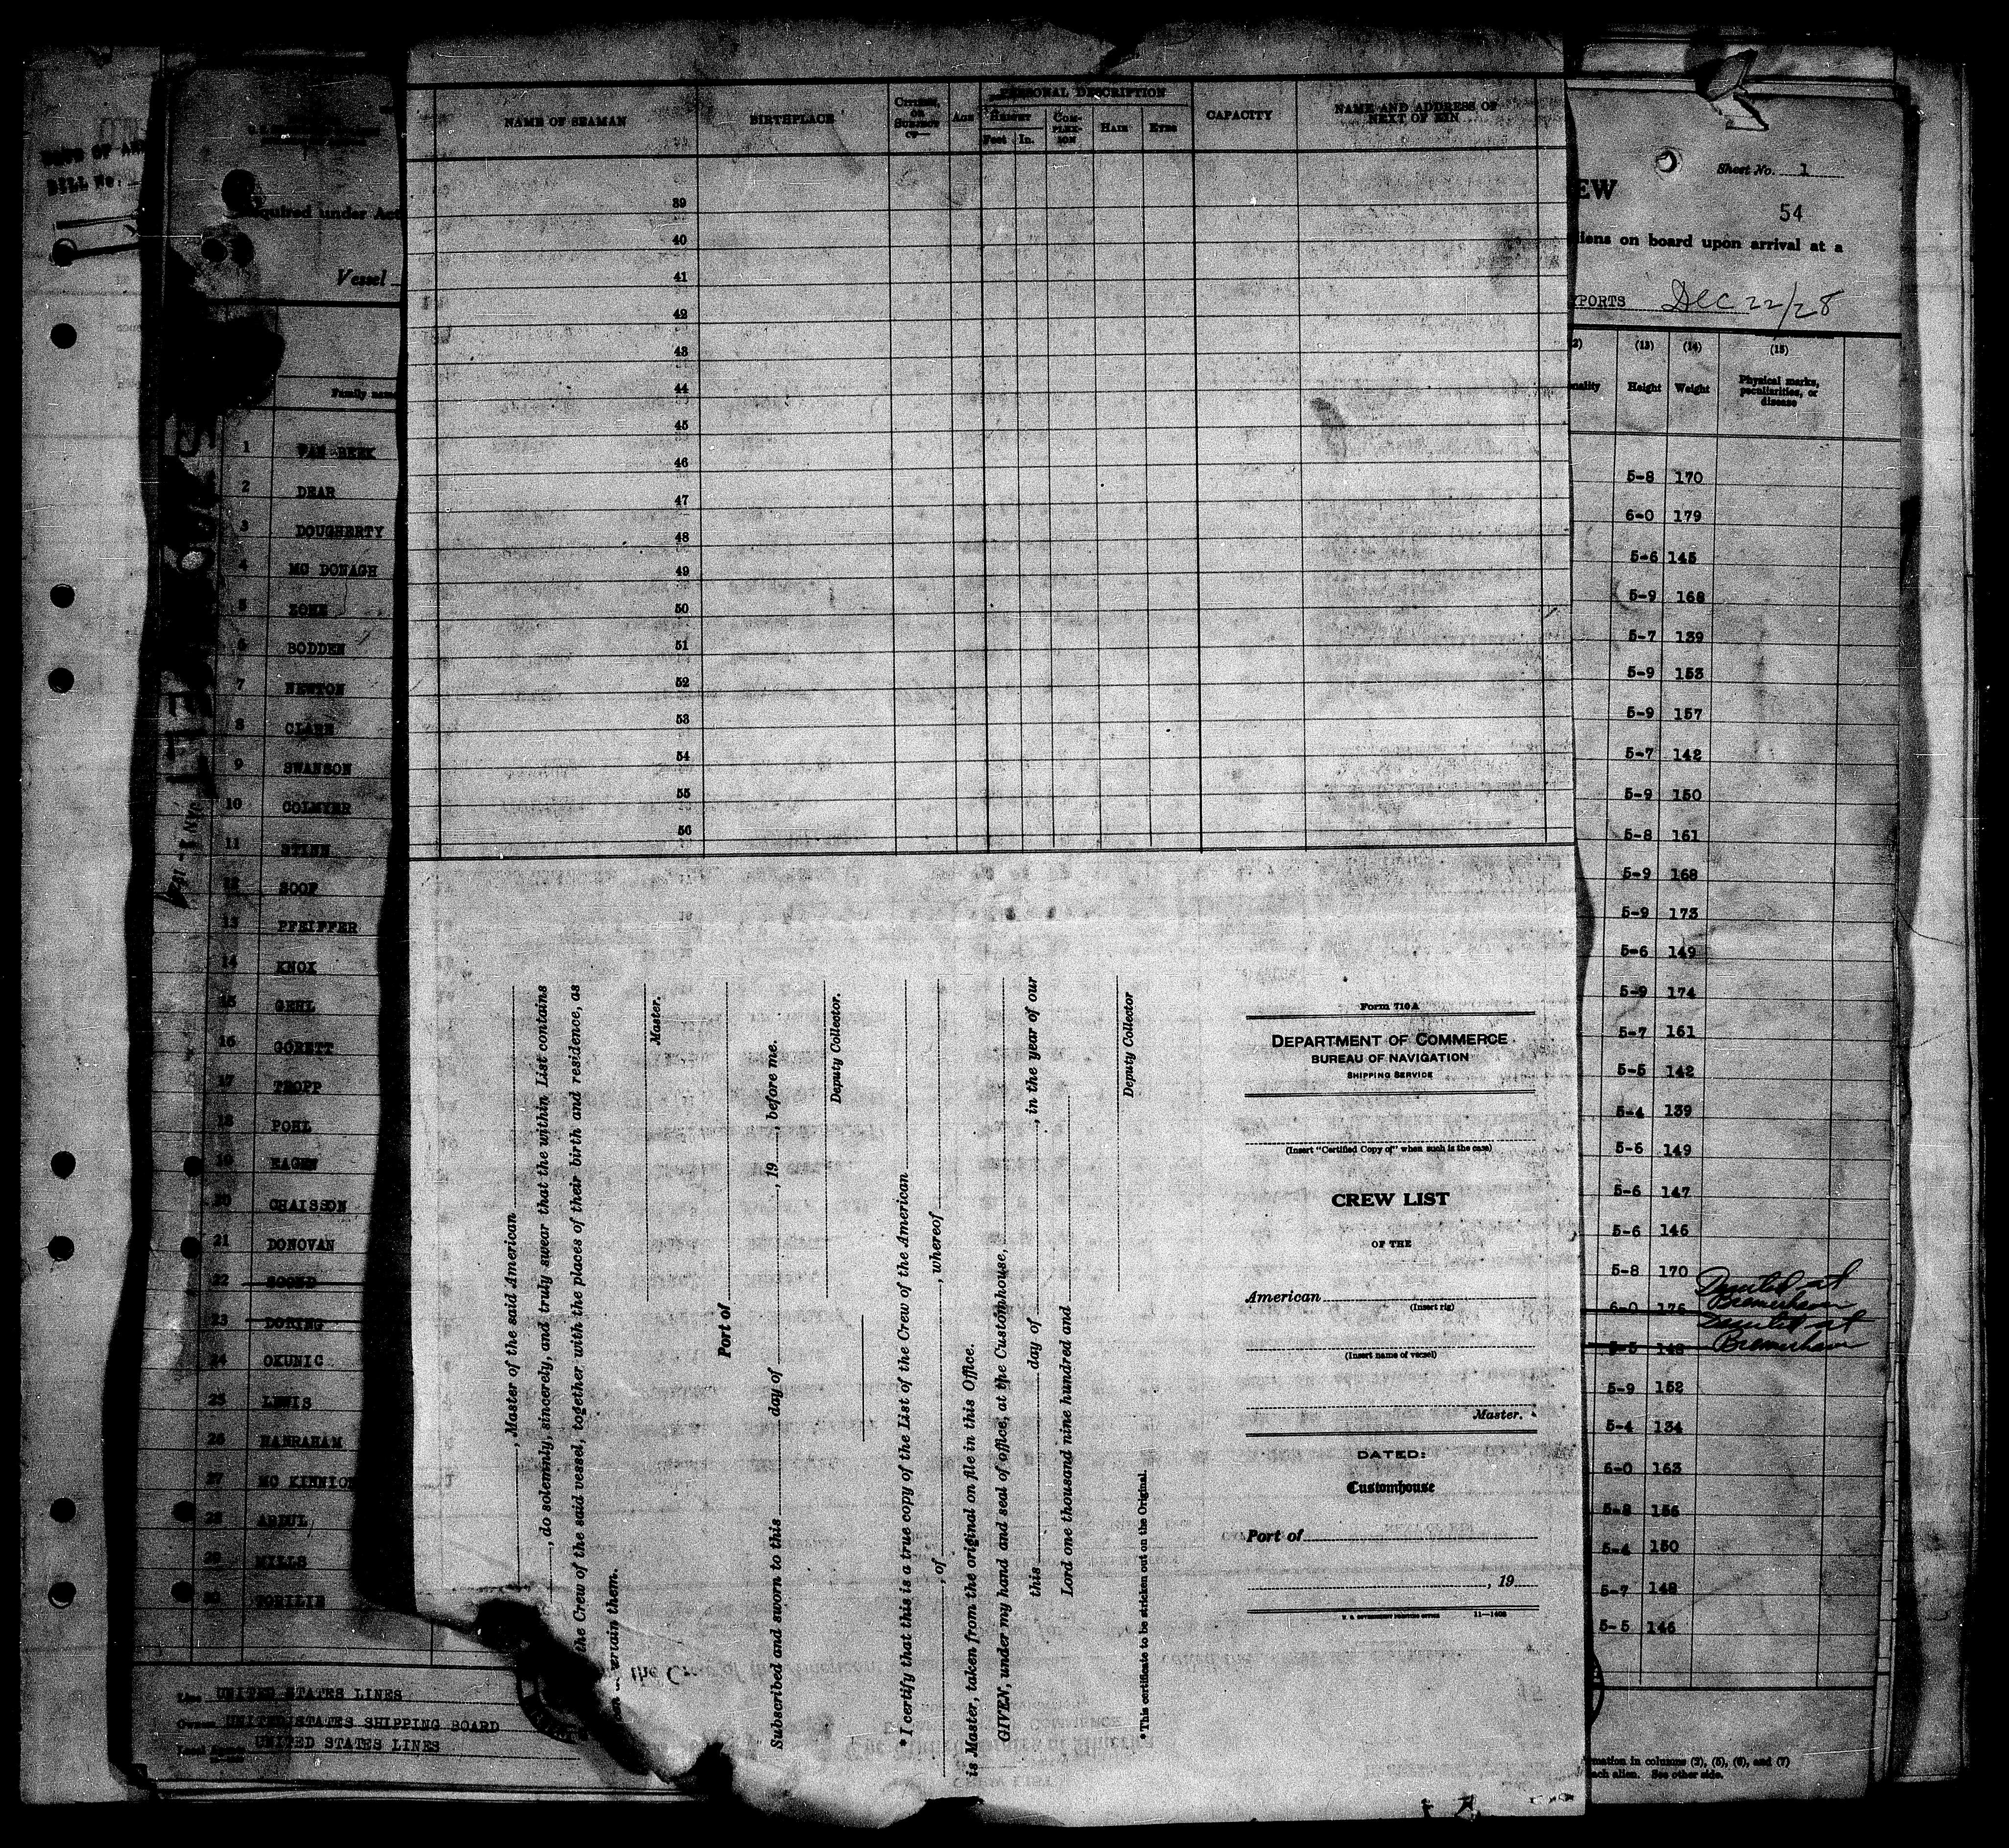 BILL No.
Required under Act
Vessel
Family name
1 VAN BEEK
2 DEAR
3 DOUGHERTY
4 MC DONAGH
5
6 BODDEN
7 NEWTON
8 CLARK
9 SWANSON
10 COLMYER
11 STINN
12 SOOP
13 PFEIFFER
14 KNOX
15 GEHL
16 GORETT
17 TROPP
18 POHL
19 EAGEN
20 CHAISSON
21 DONOVAN
22
23 DORING
24 OKUNIC
25 LEWIS
26 HANRAHAM
27 MC KINNION
28 ABDUL
29 MILLS
30
Line UNITED STATES LINES
Owners UNITED STATES SHIPPING BOARD
Local Agents UNITED STATES LINES
NAME OF SEAMAN
BIRTHPLACE
CITIZEN, OR SUBJECT OF—
AGE
PERSONAL DESCRIPTION
HEIGHT
Feet In.
COM-PLEX-ION
HAIR
EYES
CAPACITY
NAME AND ADDRESS OF NEXT OF KIN
39
40
41
42
43
44
45
46
47
48
49
50
51
52
53
54
55
56
, Master of the said American
, do solemnly, sincerely, and truly swear that the within List contains
the Crew of the said vessel, together with the places of their birth and residence, as
them.
Master.
Port of
Subscribed and sworn to this day of , 19 before me.
Deputy Collector.
* I certify that this is a true copy of the List of the Crew of the American
, of , whereof
is Master, taken from the original on file in this Office.
GIVEN, under my hand and seal of office, at the Customhouse,
this day of , in the year of our
Lord one thousand nine hundred and
Deputy Collector
* This certificate to be stricken out on the Original.
Form 710A
DEPARTMENT OF COMMERCE
BUREAU OF NAVIGATION
SHIPPING SERVICE
(Insert "Certified Copy of" when such is the case)
CREW LIST
OF THE
American
(Insert rig)
(Insert name of vessel)
Master.
DATED:
Customhouse
Port of
, 19
U. S. GOVERNMENT PRINTING OFFICE 11—1408
Sheet No. 1
EW
54
liens on board upon arrival at a
YPORTS Dec 22/28
(13) (14) (15)
nality Height Weight Physical marks, peculiarities, or disease
5-8 170
6-0 179
5-6 145
5-9 168
5-7 139
5-9 153
5-9 157
5-7 142
5-9 150
5-8 161
5-9 168
5-9 173
5-6 149
5-9 174
5-7 161
5-5 142
5-4 139
5-6 149
5-6 147
5-6 146
5-8 170
6-0 176 Deserted at Bremerhaven
5-5 148 Deserted at Bremerhaven
5-9 152
5-4 134
6-0 163
5-8 156
5-4 150
5-7 148
5-5 146
rmation in columns (2), (5), (6), and (7)
ach alien. See other side.